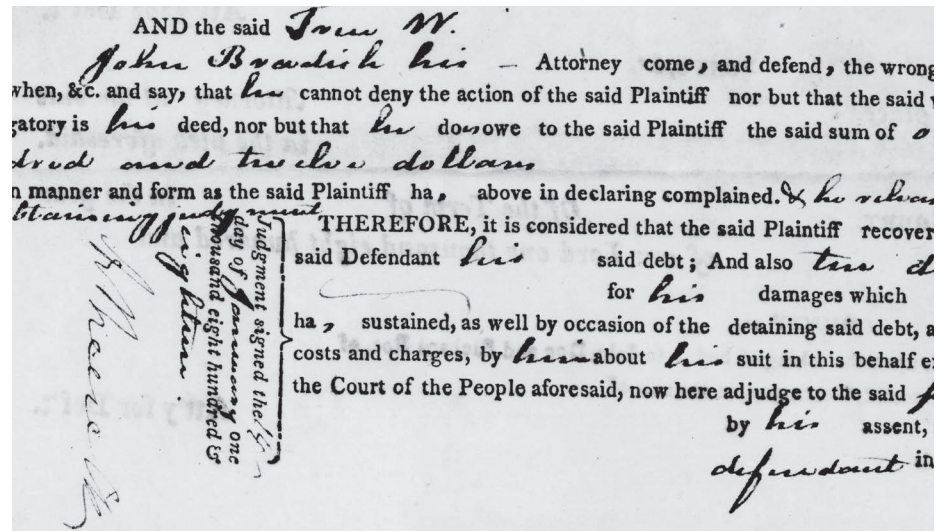 AND the said Iren W.
John Bradish his – Attorney come, and defend, the wrong
when, &c. and say, that he cannot deny the action of the said Plaintiff nor but that the said
gatory is his deed, nor but that he does owe to the said Plaintiff the said sum of o
dred and twelve dollars
n manner and form as the said Plaintiff ha, above in declaring complained. & he releas
btaining judgment
THEREFORE, it is considered that the said Plaintiff recover
said Defendant his said debt; And also
for his damages which
ha, sustained, as well by occasion of the detaining said debt, a
costs and charges, by him about his suit in this behalf e
the Court of the People aforesaid, now here adjudge to the said
by his assent,
defendant in
udgment signed the
day of January one
housand eight hundred &
eighteen.